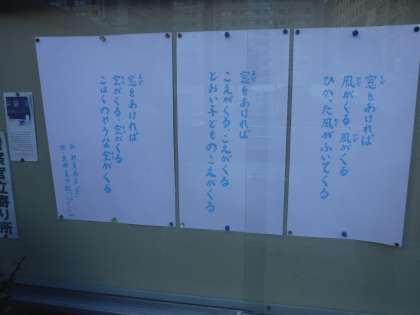 窓をあければ
風がくる、風がくる
ひかった風がふいてくる
窓をあければ
こえがくる、こえがくる
とおい子どものこえがくる
窓をあければ
空がくる、空がくる
こはくのやうな空がくる
察官立寄り所